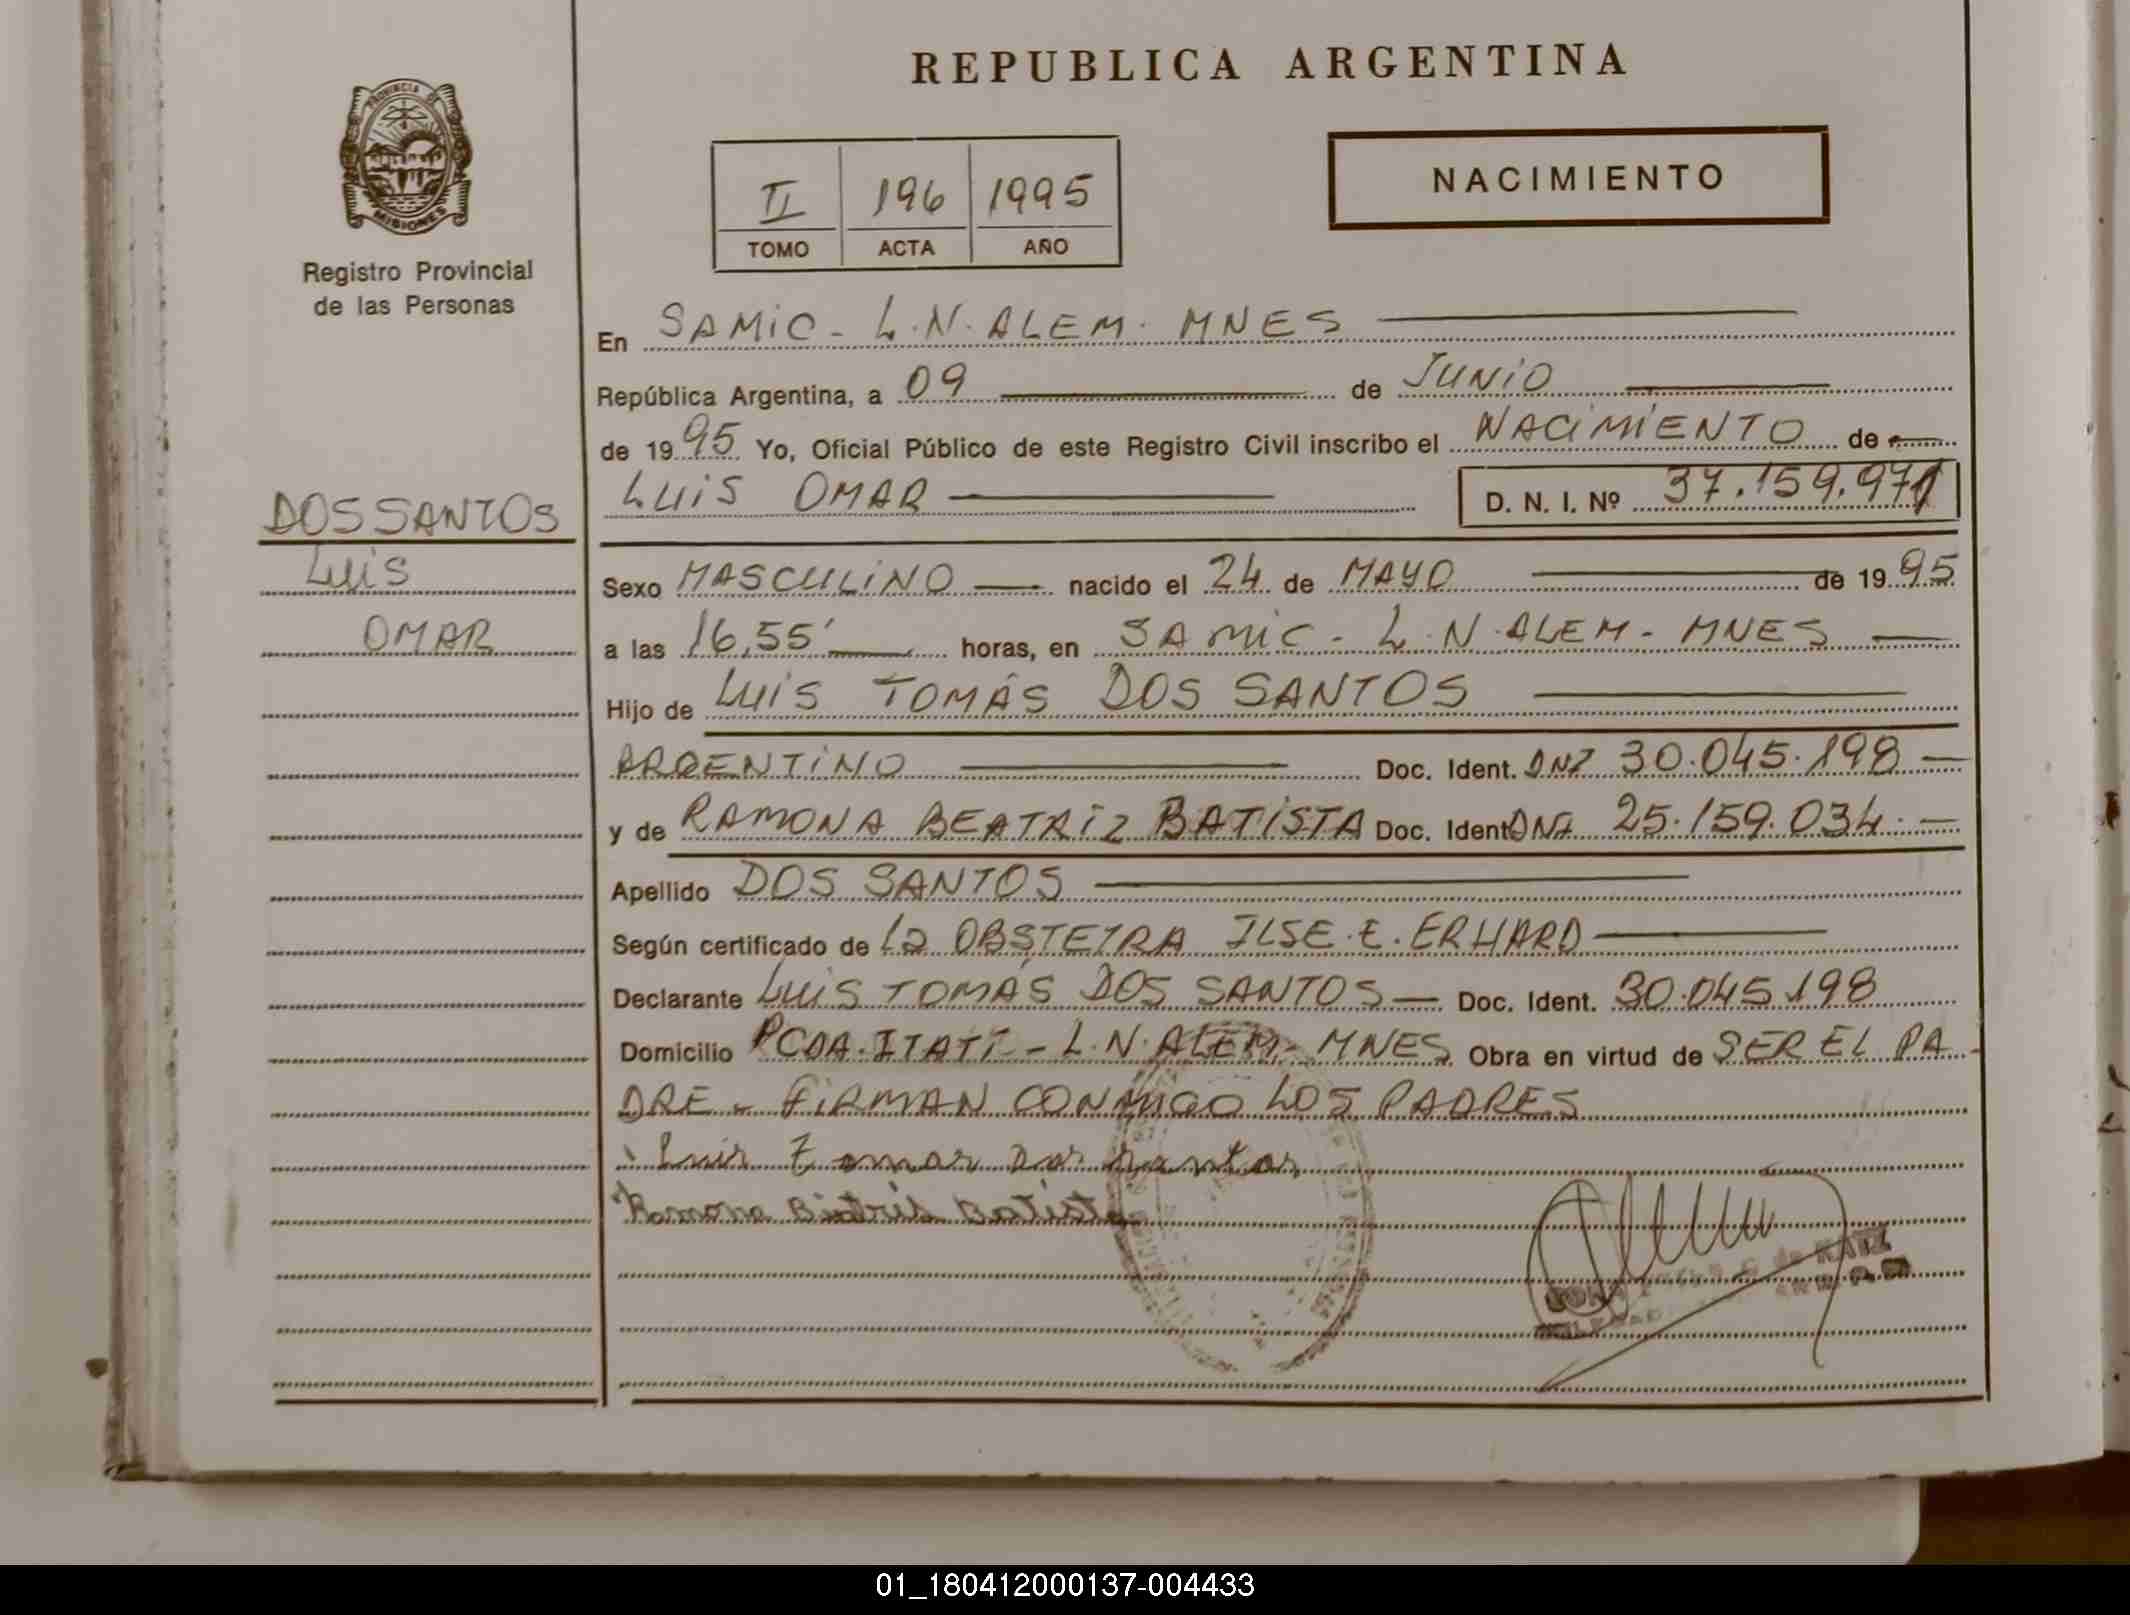 REPUBLICA ARGENTINA
PROVINCIA DE
MISIONES
Registro Provincial
de las Personas
II 196 1995
TOMO ACTA AÑO
NACIMIENTO
En SAMIC - L.N. ALEM. MNES
República Argentina, a 09 de JUNIO
de 1995 Yo, Oficial Público de este Registro Civil inscribo el NACIMIENTO de
LUIS OMAR D. N. I. Nº 37.159.971
DOS SANTOS
LUIS
OMAR
Sexo MASCULINO nacido el 24 de MAYO de 1995
a las 16,55' horas, en SAMIC - L.N. ALEM - MNES
Hijo de LUIS TOMÁS DOS SANTOS
ARGENTINO Doc. Ident. DNI 30.045.198
y de RAMONA BEATRIZ BATISTA Doc. Ident DNI 25.159.034.
Apellido DOS SANTOS
Según certificado de La OBSTETRA ILSE.E.ERHARD
Declarante LUIS TOMÁS DOS SANTOS Doc. Ident. 30.045.198
Domicilio PCDA. ITATÍ - L.N. ALEM - MNES Obra en virtud de SER EL PA-
DRE - FIRMAN CONMIGO LOS PADRES
Luis Tomas Dos Santos
Ramona Biatris Batista
de KATZ
01_180412000137-004433